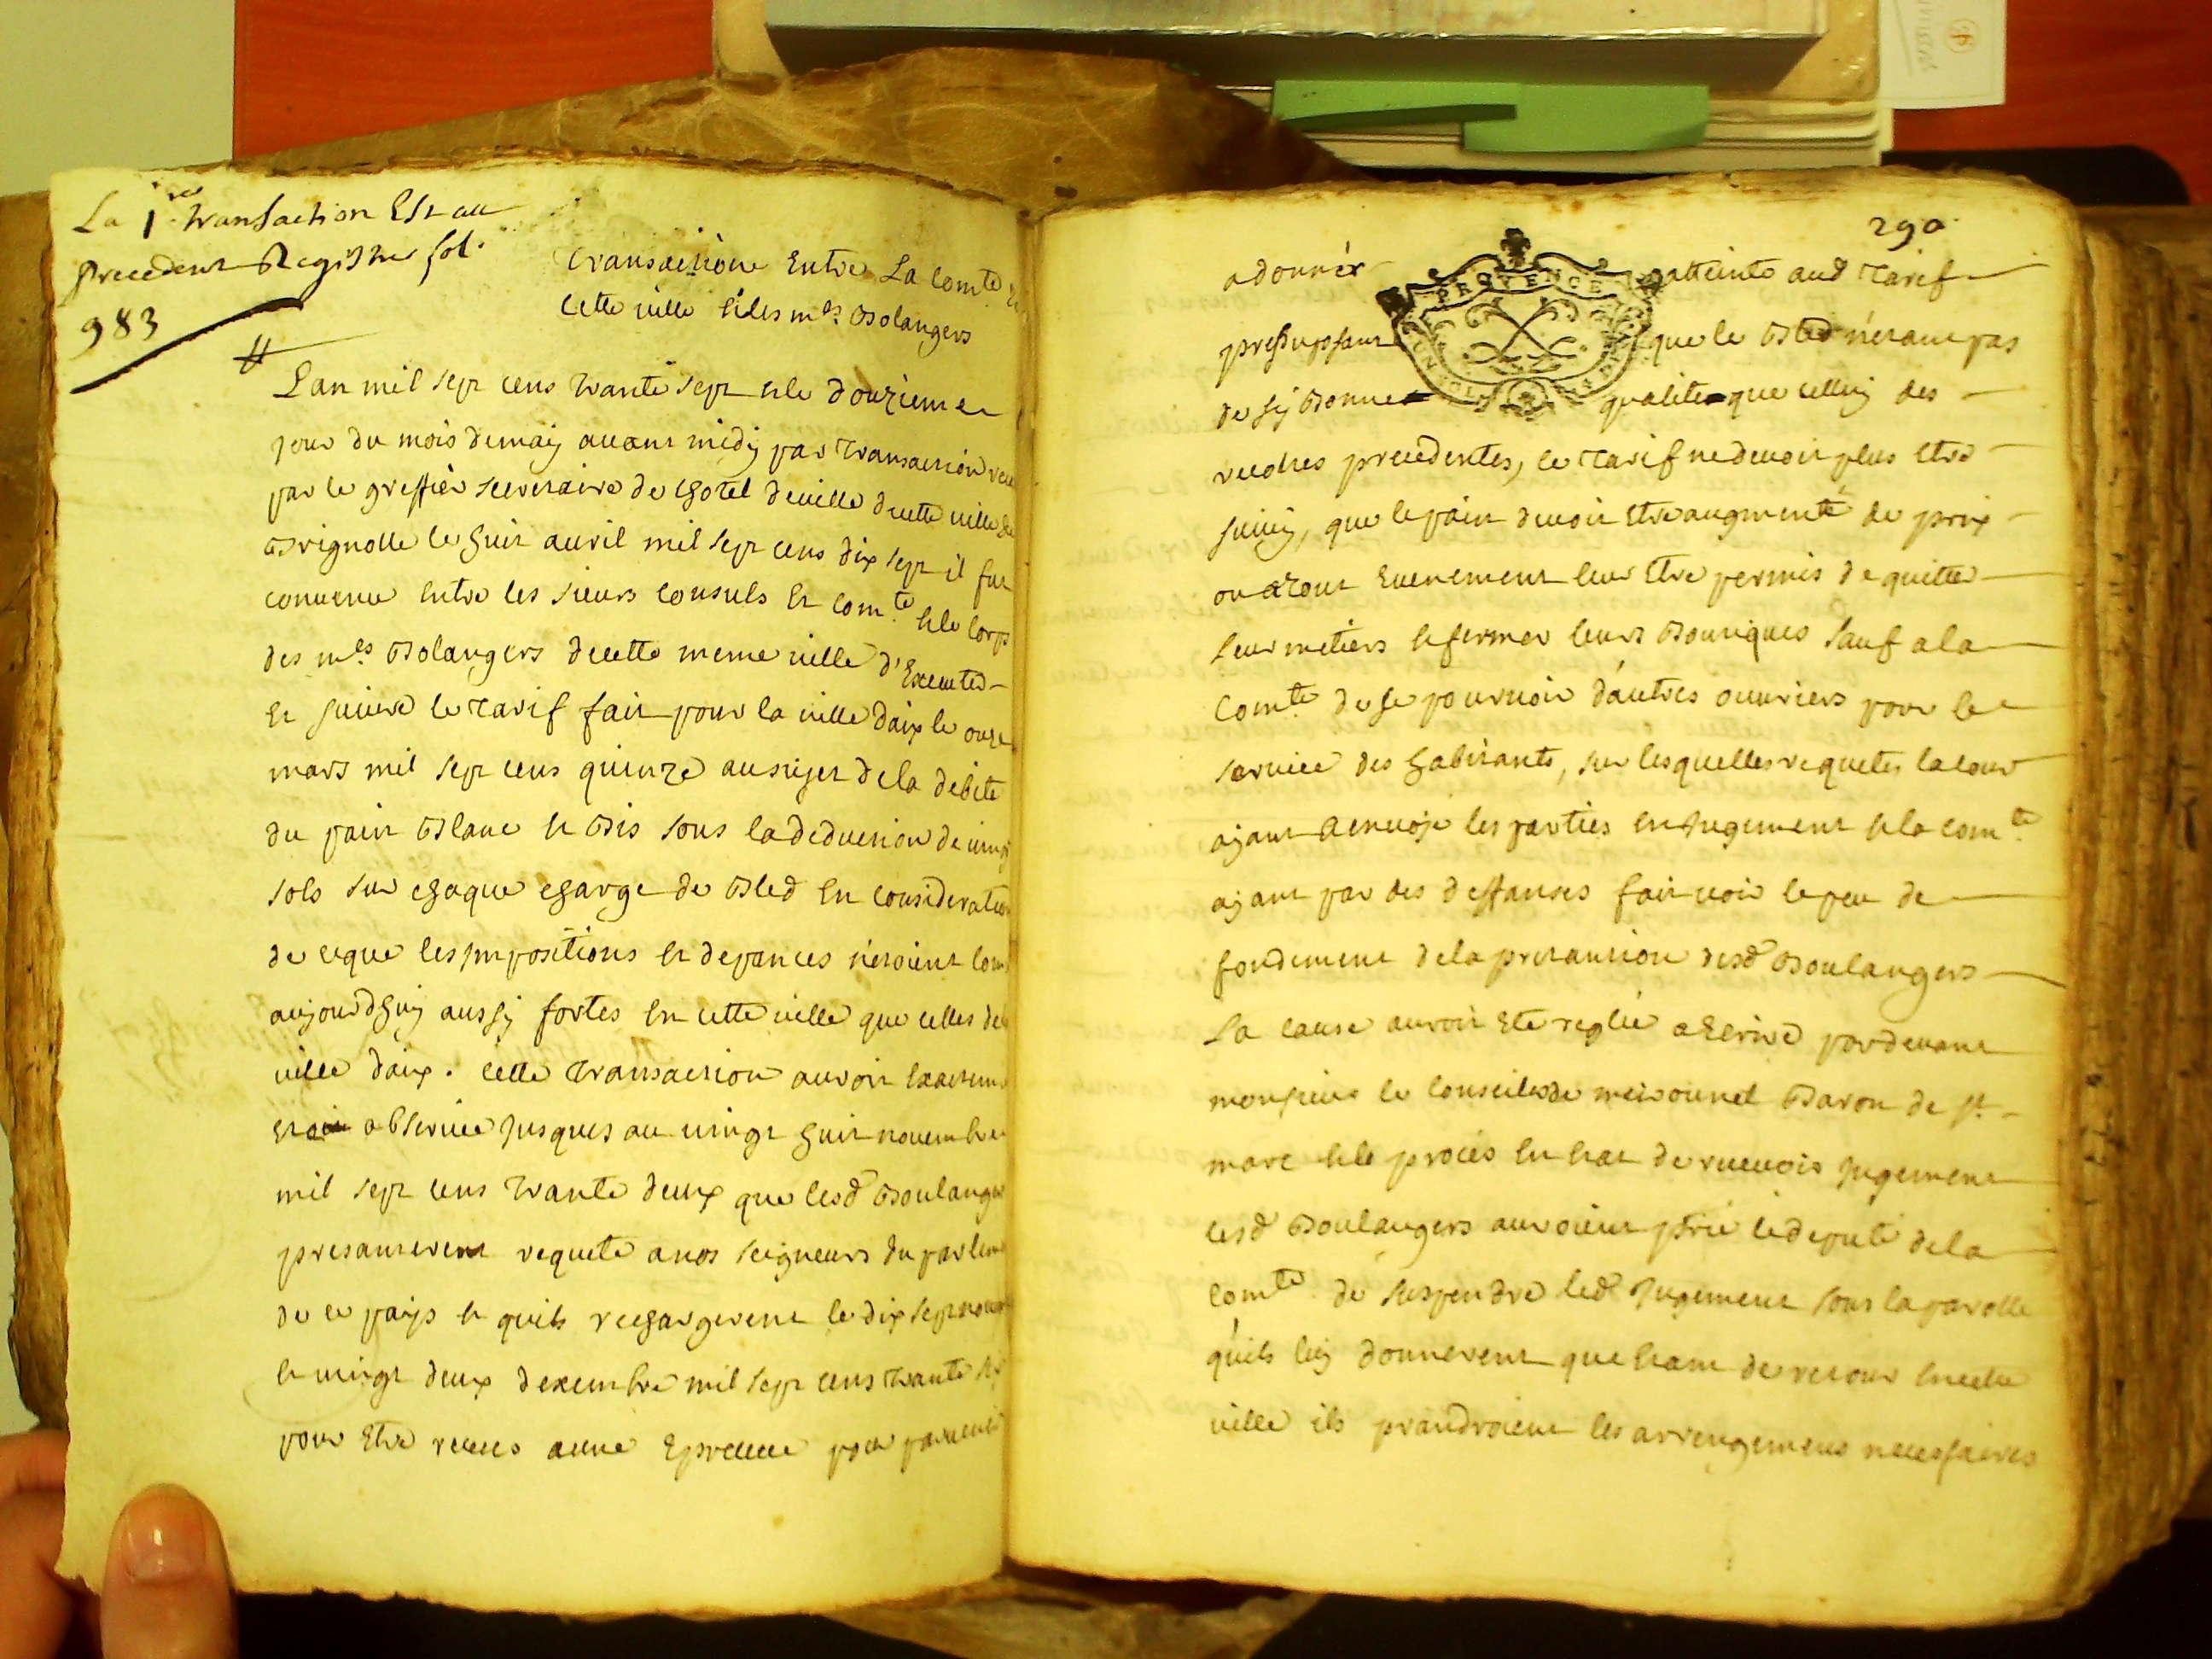 La 1re transaction Est au
precedent Registre fol.
983
transactione Entre La comté de
cette ville et les mes Bolangers
L'an mil sept cens trante sept et le douzieme
jour du mois de may avant midy par transaction receu
par le greffier secretaire de l'hotel de ville de cette ville de
Brignolle le huit avril mil sept cens dix sept il fut
convenu entre les sieurs consuls et comté et le corps
des mes Bolangers de cette meme ville d'Executer
et suivre le tarif fait pour la ville d'aix le onze
mars mil sept cens quinze au sujet de la debite
du pain Blanc et Bis sous la deduction de vingt
sols sur chaque charge de Bled en consideration
de ce que les jmpositions et depances n'etoient
aujourdhuy aussy fortes en cette ville que celles de
ville d'aix. cette transaction auroit exactem
observée jusques au vingt huit novembre
mil sept cens trante deux que lesd Boulangers
presanterent requete a nos seigneurs du parlem
de ce pays et quils rechargerent le dix sept nov
et vingt deux dexembre mil sept cens trante
pour etre receus a une Epreuve pour parvenir
290
a donner atteinte aud tarif
PROVENCE
presuposant que le Bled n'etant pas
de sy Bonne qualité que celluy des
recoltes precedentes, le tarif ne devoit plus etre
suivy, que le pain devoit etre augmenté de prix
ou a tout Evenement leur etre permis de quitter
leur metiers et fermer leurs Boutiques sauf a la
comté de se pourvoir d'autres ouvriers pour le
service des habitants, sur lesquelles requetes la cour
ajant Renvojé les parties en jugement et la comté
ajant par des deffanses fait voir le peu de
fondement de la pretantion desd Boulangers
La cause auroit eté reglée a Ecrire pardevant
monsieur le conseiller de meironnet Baron de st
marc et le procès en etat de recevoir jugement
lesd Boulangers auroient prié le deputé de la
comté de suspendre led jugement sous la parolle
quils luy donnerent que etant de retour en cette
ville ils prandroient les arrengemens necessaires